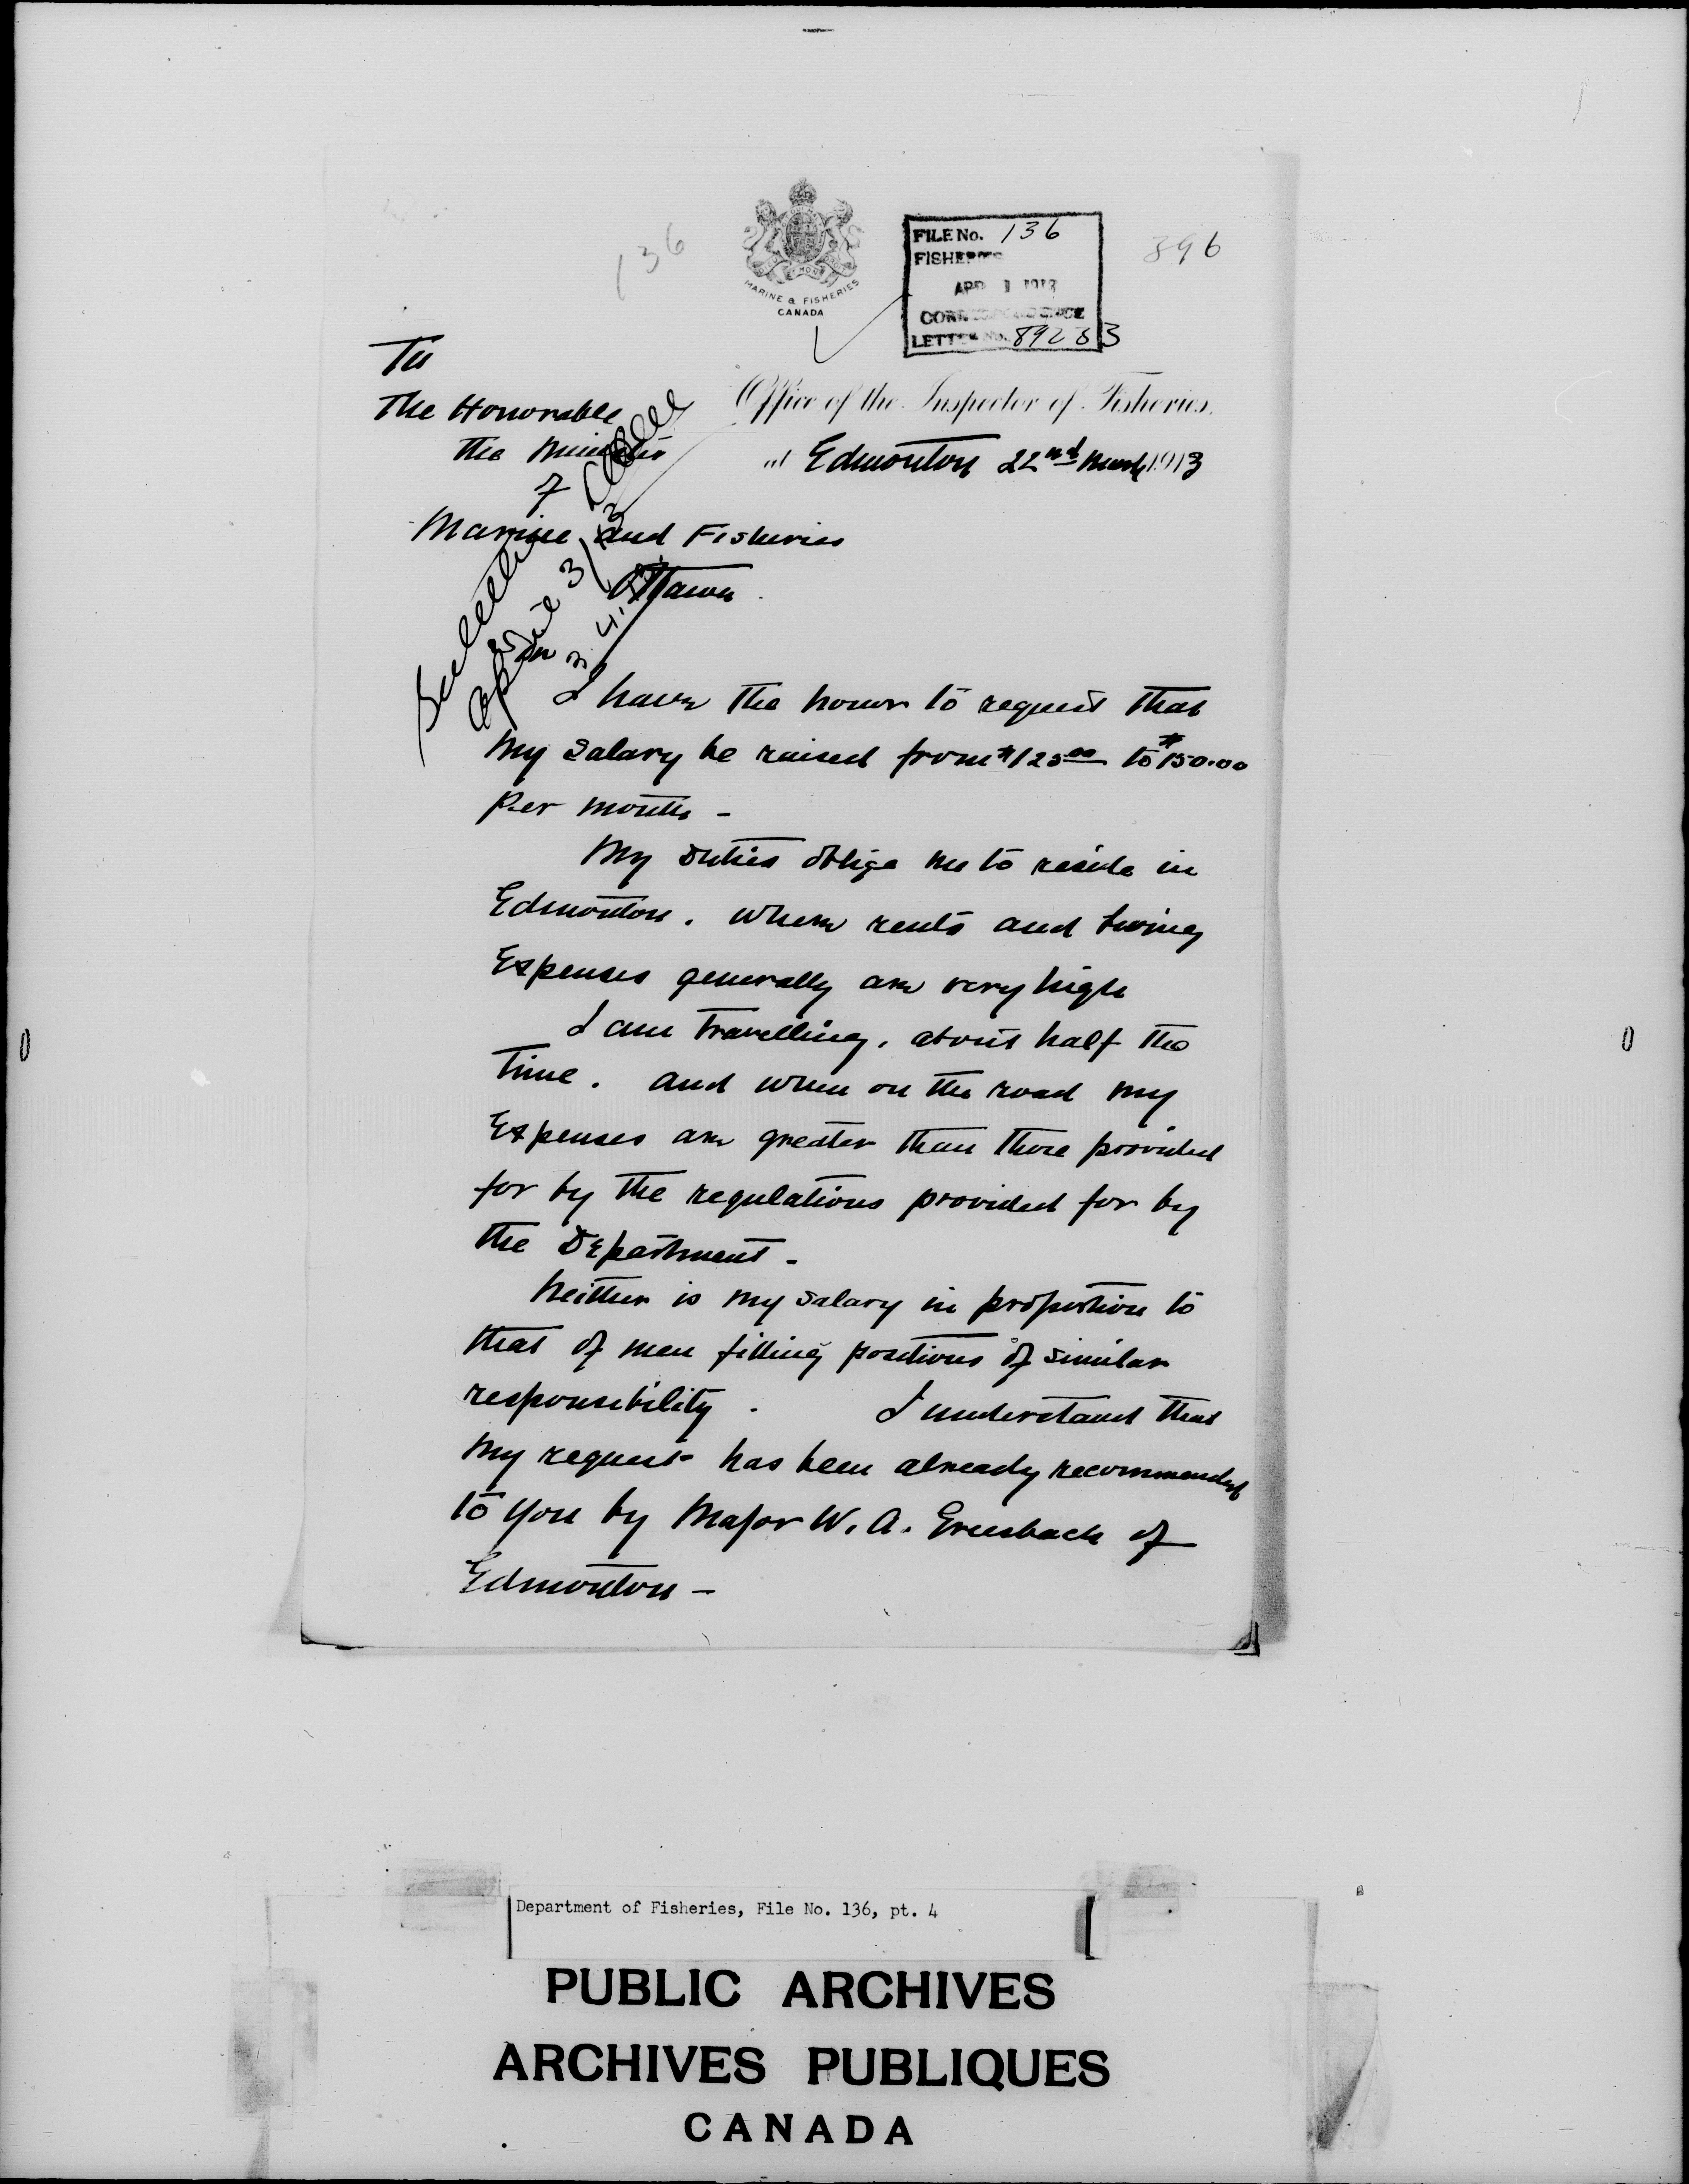 136
MARINE & FISHERIES
CANADA
FILE No. 136
FISHERIES
APR 1 1913
CORRESPONDENCE
LETTER No. 89283
396
To
The Honorable
the Minister
of
Marine and Fisheries
Ottawa.
Office of the Inspector of Fisheries.
at Edmonton 22nd March 1913
April 3/13
3.4.13
Sir
I have the honor to request that
my salary be raised from $125.00 to $150.00
per month -
My duties oblige me to reside in
Edmonton. where rents and living
Expenses generally are very high
I am travelling, about half the
time. and when on the road my
Expenses are greater than those provided
for by the regulations provided for by
the Department -
Neither is my salary in proportion to
that of men filling positions of similar
responsibility. I understand that
my request has been already recommended
to you by Major W. A. Griesbach of
Edmonton -
Department of Fisheries, File No. 136, pt. 4
PUBLIC ARCHIVES
ARCHIVES PUBLIQUES
CANADA